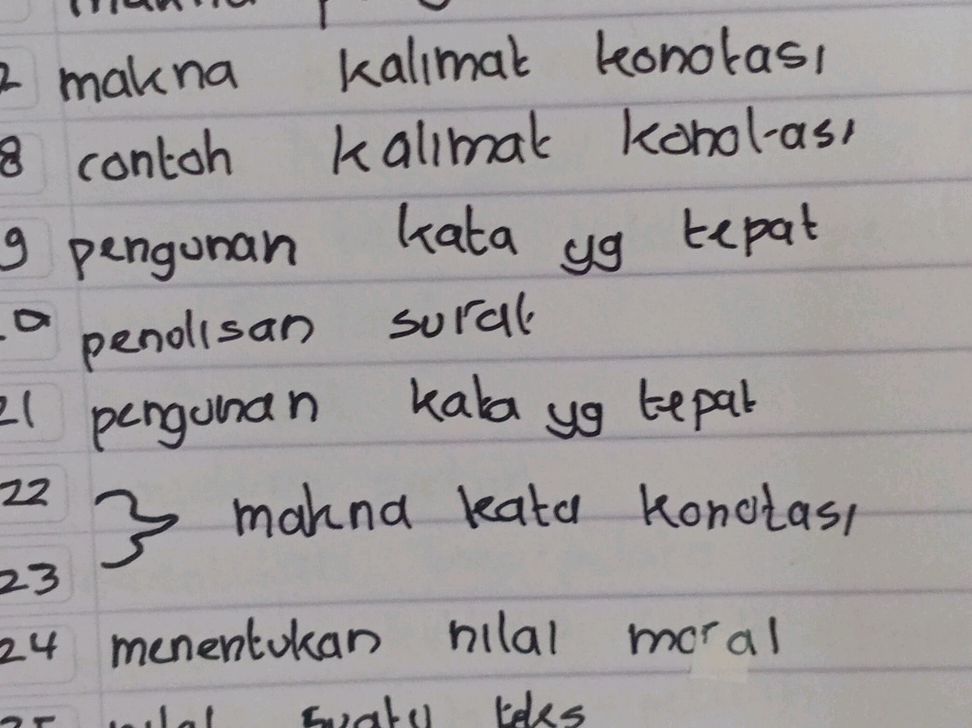 2 makna kalimat konotasi
8 contoh kalimat konotasi
9 pengunan kata yg tepat
0 penulisan surat
21 pengunan kata yg tepat
22 } makna kata konotasi
23
24 menentukan nilai moral
25 nilai suatu teks